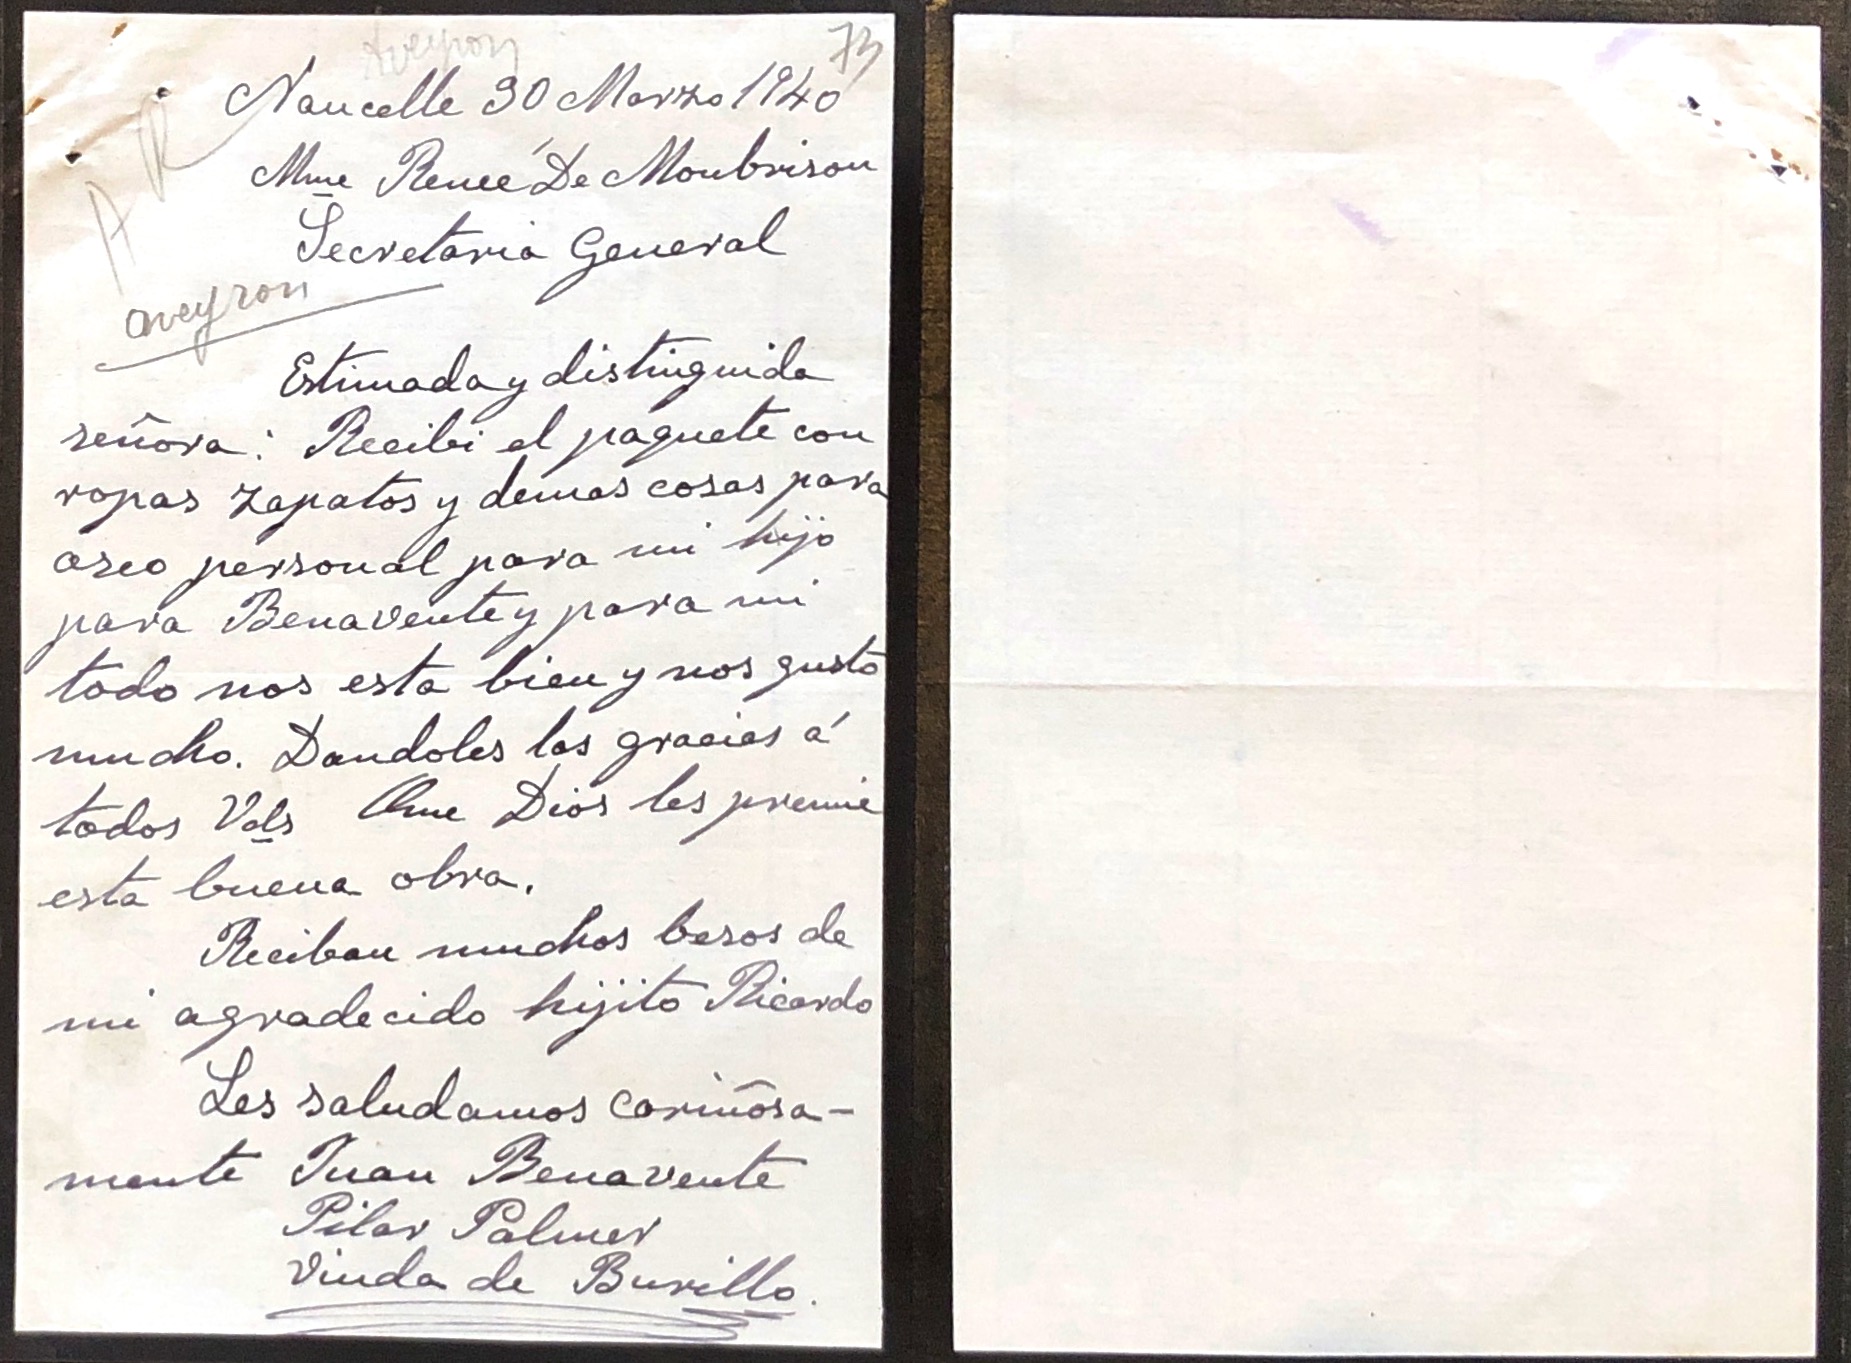 Aveyron
73
Naucelle 30 Marzo 1940
A R
Mme Reneé De Monbrison
Secretaria General
aveyron
Estimada y distinguida
señora: Recibi el paquete con
ropas zapatos y demas cosas para
aseo personal para mi hijo
para Benavente y para mi
todo nos esta bien y nos gusto
mucho. Dandoles las gracias á
todos Vds Que Dios les premie
esta buena obra.
Reciban muchos besos de
mi agradecido hijito Ricardo
Les saludamos cariñosa-
mente Juan Benavente
Pilar Palmer
Viuda de Burillo.